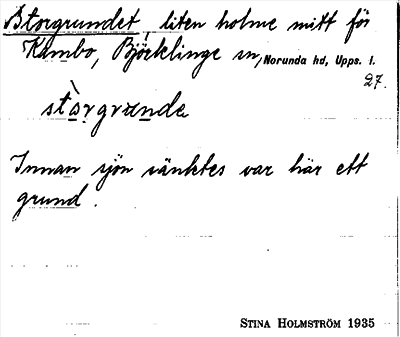 Storgrundet, liten holme mitt för
Kambo, Björklinge sn, Norunda hd, Upps. l.
27.
stòrgrunde
Innan sjön sänktes var här ett
grund.
STINA HOLMSTRÖM 1935